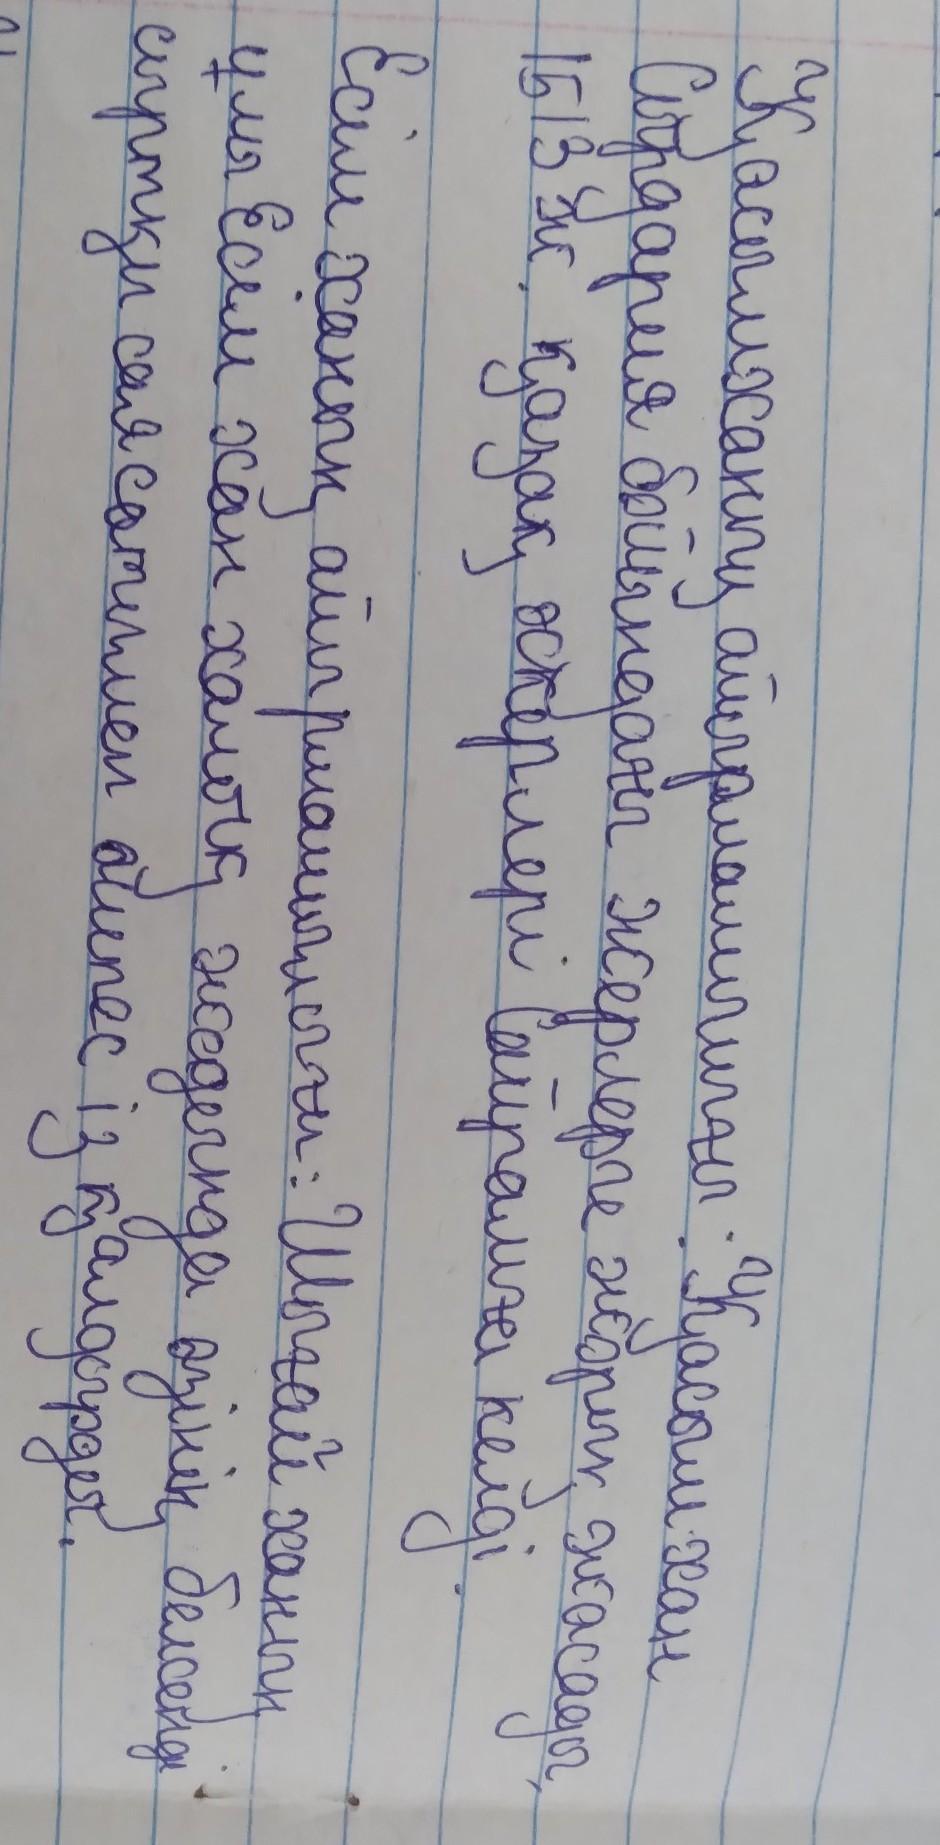 Қасымханның айырмашылығы. Қасым хан
Сырдария бойындағы жерлерге жорық жасады,
1513 ж. қазақ әскерлері Сайрамға келді.
Есім ханның айырмашылығы: Шығай ханның
ұлы Есім хан халық жадында өзінің белсенді
сыртқы саясатымен өшпес із қалдырды.